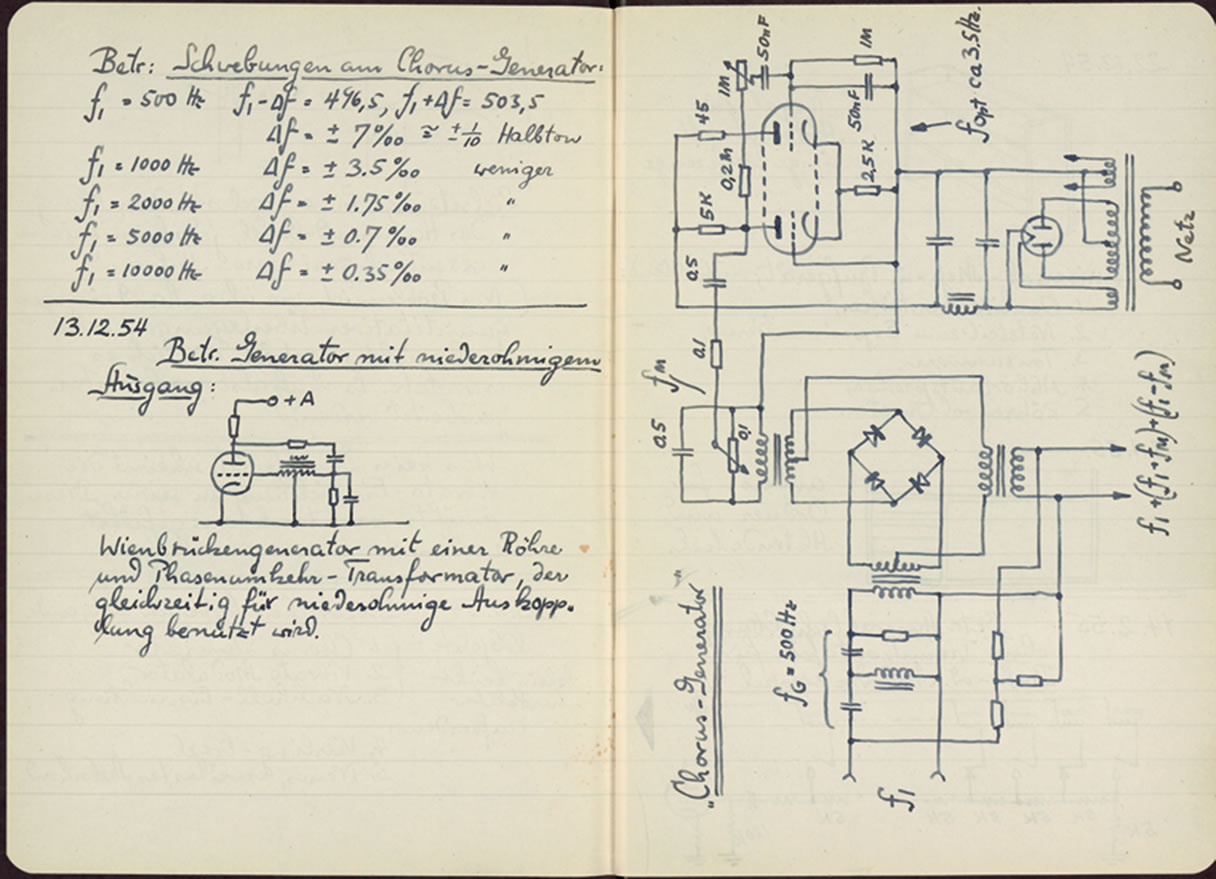 Betr: Schwebungen am Chorus-Generator:
f₁ = 500 Hz f₁-Δf = 496,5, f₁+Δf = 503,5
Δf = ± 7‰ ≅ ± 1/10 Halbton
f₁ = 1000 Hz Δf = ± 3.5‰ weniger
f₁ = 2000 Hz Δf = ± 1.75‰ "
f₁ = 5000 Hz Δf = ± 0.7‰ "
f₁ = 10000 Hz Δf = ± 0.35‰ "
13.12.54
Betr. Generator mit niederohmigem
Ausgang:
+A
Wienbrückengenerator mit einer Röhre
und Phasenumkehr-Transformator, der
gleichzeitig für niederohmige Auskopp.
lung benützt wird.
"Chorus-Generator"
fG = 500 Hz
f₁
0.5
fM
0.1
0.1
0.5
5K
45
0,2M
1M
50nF
1M
50nF
2,5K
fopt ca 3.5Hz.
Netz
f₁+(f₁+fM)+(f₁-fM)